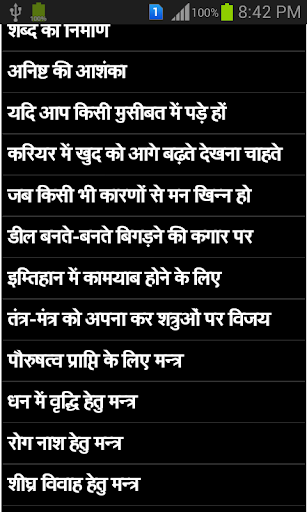 1
100%
8:42 PM
शब्द का निर्माण
अनिष्ट की आशंका
यदि आप किसी मुसीबत में पड़े हों
करियर में खुद को आगे बढ़ते देखना चाहते
जब किसी भी कारणों से मन खिन्न हो
डील बनते-बनते बिगड़ने की कगार पर
इम्तिहान में कामयाब होने के लिए
तंत्र-मंत्र को अपना कर शत्रुओं पर विजय
पौरुषत्व प्राप्ति के लिए मन्त्र
धन में वृद्धि हेतु मन्त्र
रोग नाश हेतु मन्त्र
शीघ्र विवाह हेतु मन्त्र